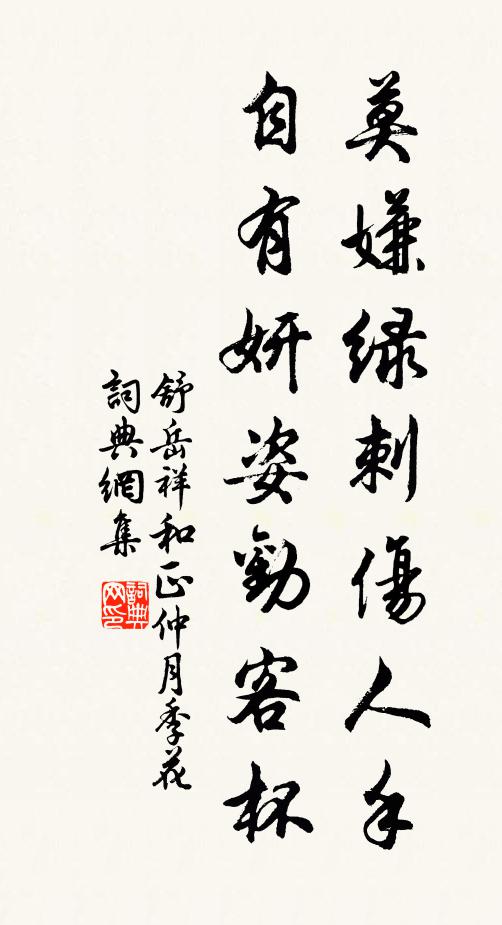 莫嫌绿刺傷人手
自有妍姿勸客杯
舒岳祥和正仲月季花
詞典網集
詞典网印